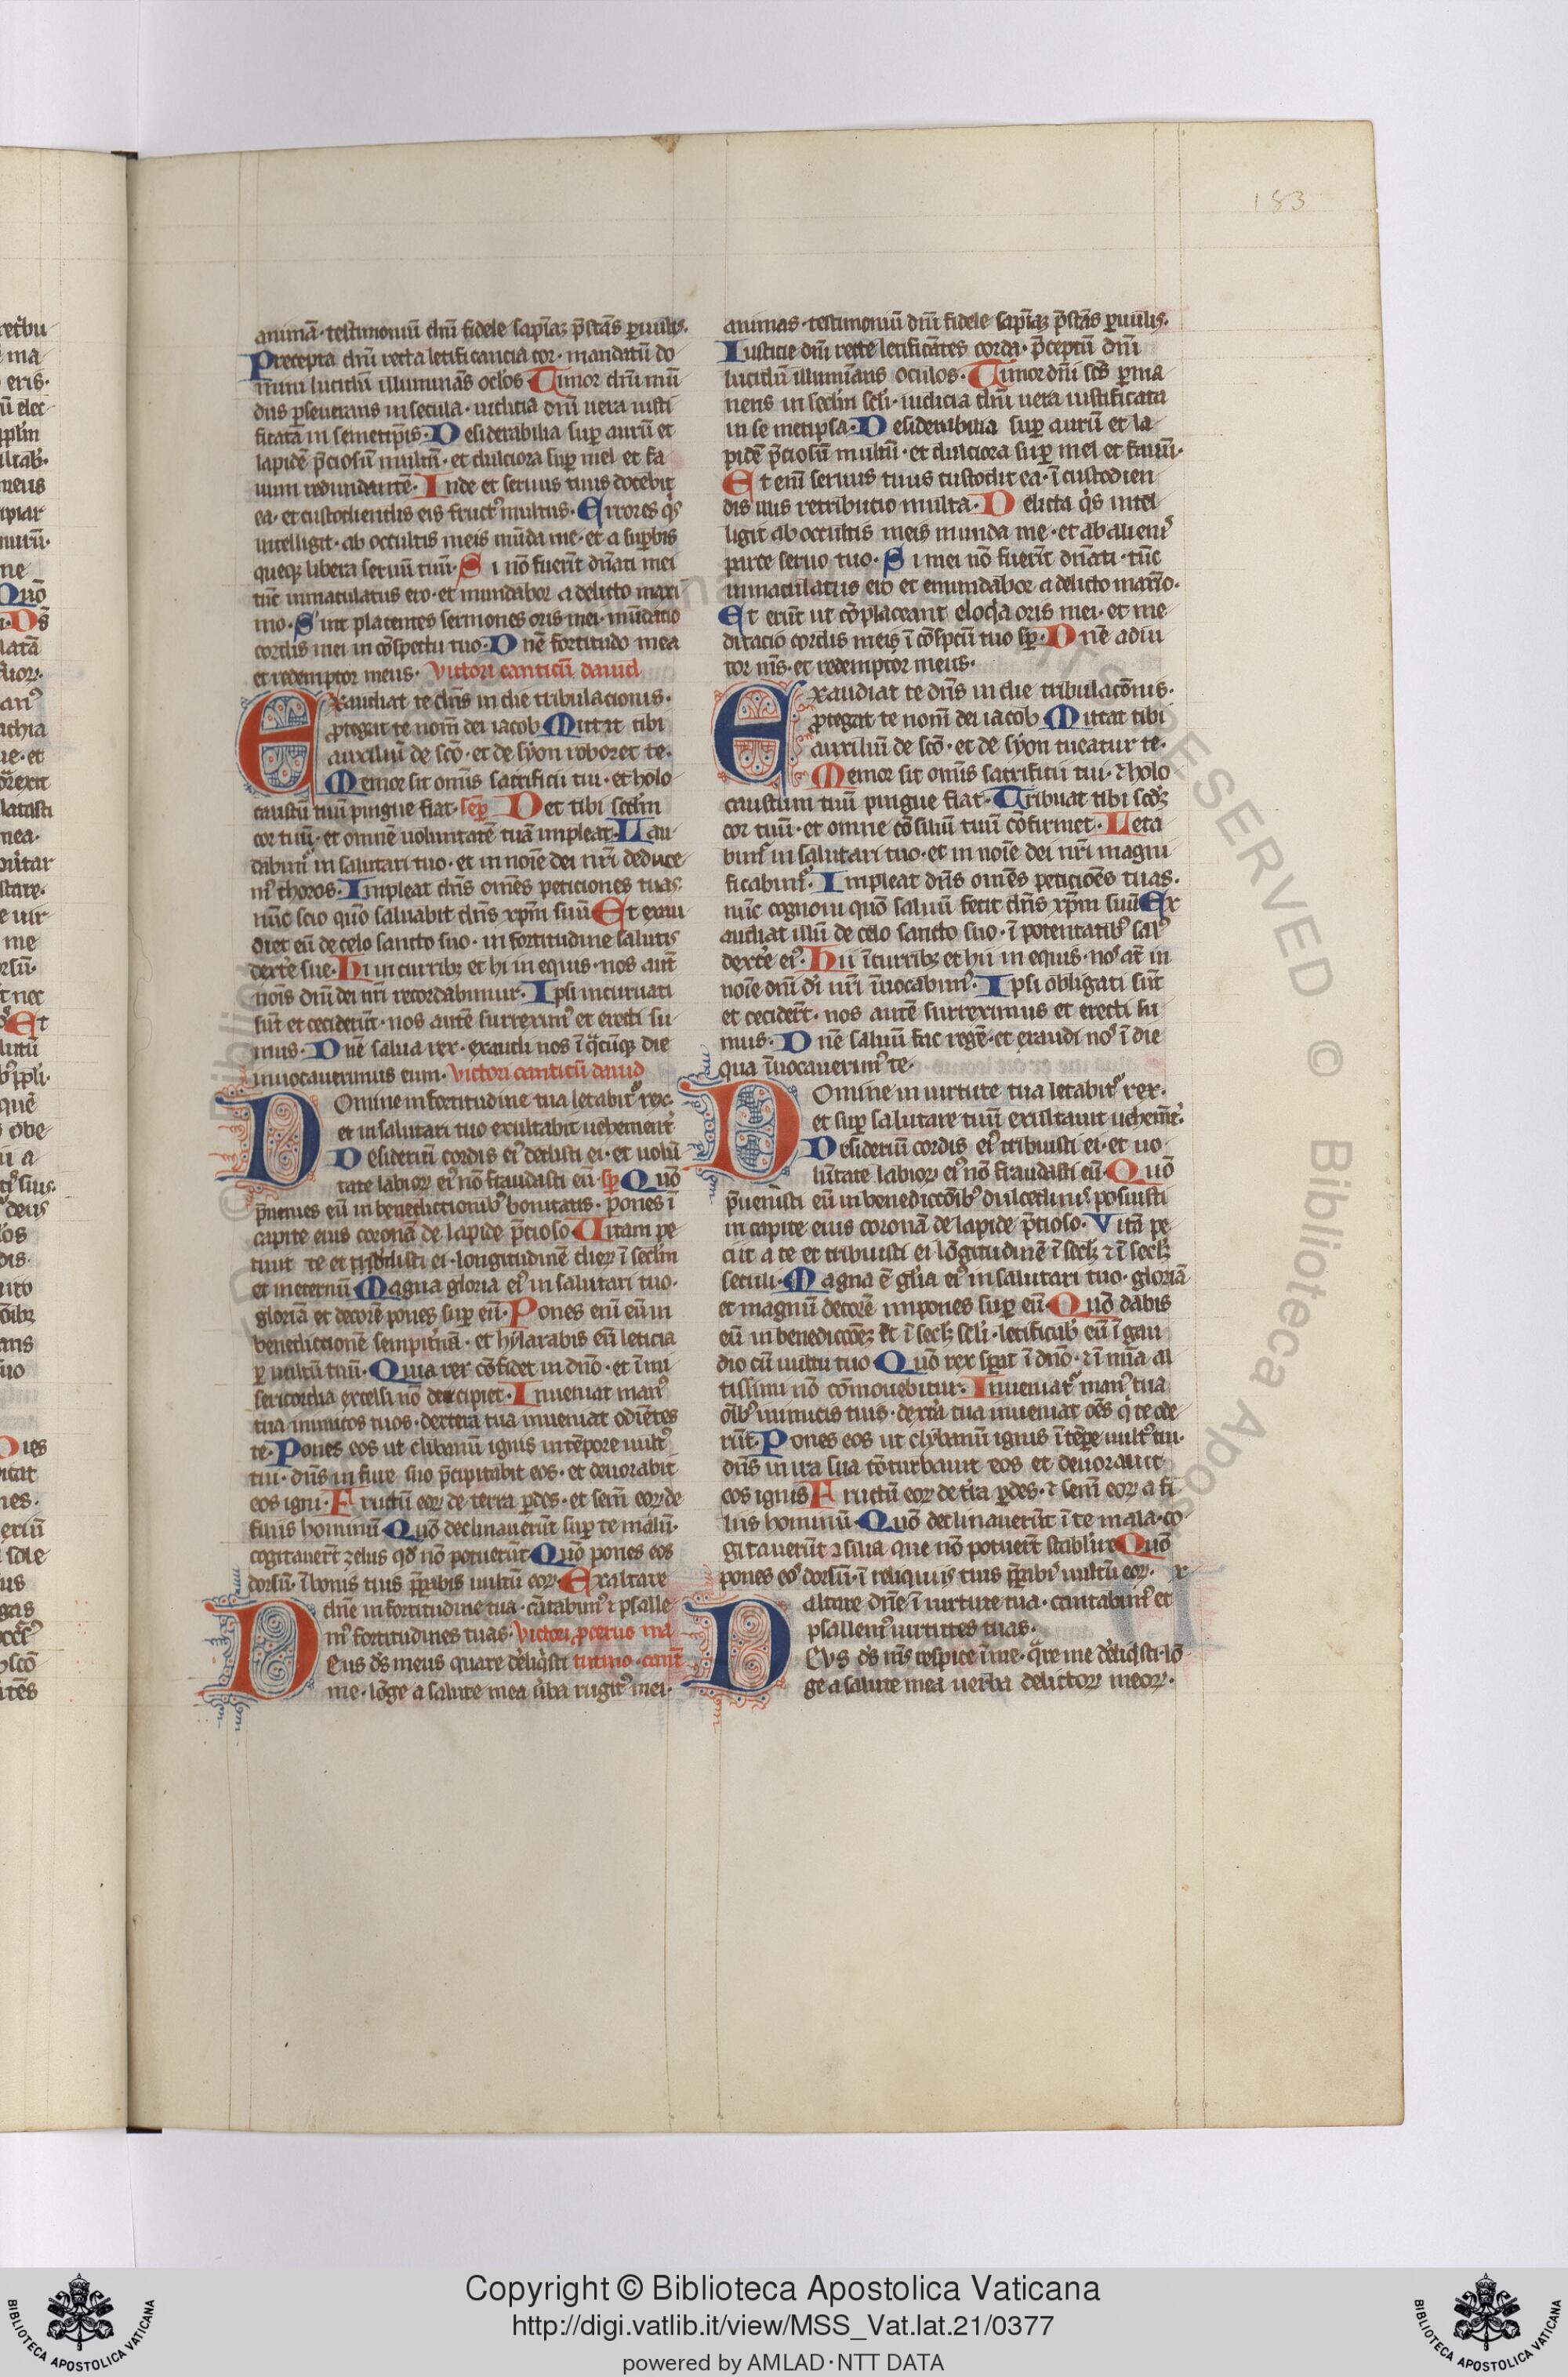 183
animā· testimoniū dn̄i fidele sapīaꝫ p̄stās ꝑuulis·
Precepta dn̄i recta letificancia cor· mandatū do
mini lucidū illuminās oc̄los Timor dn̄i mū
dus ꝑseuerans in secula· iudicia dn̄i uera iusti
ficata in semetip̄is· Desiderabilia suꝑ aurū et
lapidē p̄ciosū multū· et dulciora suꝑ mel et fa
uum redundantē· Inde et seruus tuus docebit
ea· et custodiendis eis fruct᷒ multus· Errores q̄s
intelligit· ab occultis meis mūda me· et a suꝑbis
queqꝫ libera seruū tuū· Si nō fuerīt dn̄ati mei
tūc inmaculatus ero· et mundabor a delicto maxi
mo· Sint placentes sermones oris mei· mūdatio
cordis mei in cōspectu tuo· Dn̄e fortitudo mea
et redemptor meus· Victori canticū dauid
Exaudiat te dn̄s in die tribulacionis·
ꝓtegat te nom̄ dei iacob Mittat tibi
auxiliū de sc̄o· et de syon roboret te·
Memor sit omīs sacrificii tui· et holo
caustū tuū pingue fiat· semꝑ Det tibi scd̄m
cor tuū· et omnē uoluntatē tuā impleat· Lau
dabim᷒ in salutari tuo· et in noīe dei nr̄i deduce
m᷒ choros· Impleat dn̄s omēs peticiones tuas·
nūc scio quō saluabit dn̄s xp̄m suū Et exau
diet eū de celo sancto suo· in fortitudine salutis
dext̄e sue· Hi in curribꝫ et hi in equis· nos aut̄
noīs dn̄i dei nr̄i recordabimur· Ipsi incuruati
sūt et cecider̄ūt· nos autē surrexim᷒ et erecti su
mus· Dn̄e salua rex· exaudi nos ī q̄cūqꝫ die
inuocauerimus eum· Victori canticū dauid
Domine in fortitudine tua letabit᷒ rex·
et in salutari tuo exultabit uehement̄
Desideriū cordis ei᷒ dedisti ei· et uolū
tate labioꝝ ei᷒ nō fraudasti eū· sꝑ Quō
p̄uenies eū in benedictionib᷒ bonitatis· pones ī
capite eius coronā de lapide p̄cioso Vitam pe
tiuit te et tribuisti ei· longitudinē dieꝝ ī seclm̄
et in eternū Magna gloria ei᷒ in salutari tuo·
gloriā et decorē pones suꝑ eū· Pones enī eū in
benedictionē sempit̄nā· et hylarabis eū leticia
ꝑ uultū tuū· Quia rex cōfidet in dn̄o· et ī mi
sericordia excelsi nō decipiet· Inueniat man᷒
tua inimicos tuos· dextera tua inueniat odiētes
te· Pones eos ut clibanū ignis in tēpore uult᷒
tui· dn̄s in fure suo p̄cipitabit eos· et deuorabit
eos igni· Fructū eoꝝ de terra ꝑdes· et sem̄ eoꝝ de
filiis hominū Quō declinauerūt suꝑ te malū·
cogitauer̄t zelus qd̄ nō potuerūt Quō pones eos
dorsū· ī bonis tuis p̄ꝑabis uultū eoꝝ· Exaltare
dn̄e in fortitudine tua· cātabim᷒ ⁊ psalle
m᷒ fortitudines tuas· Victori ꝓ ceruo ma
Deus ds̄ meus quare dēliq̄sti tutino· canī
me· lōge a salute mea ūba rugit᷒ mei·
animas· testimoniū dn̄i fidele sapīaꝫ p̄stās ꝑuulis·
Iusticie dn̄i recte letificātes corda· p̄ceptū dn̄i
lucidū illumīans oculos· Timor dn̄i scs̄ ꝑma
nens in seclm̄ scli᷒· iudicia dn̄i uera iustificata
in se metipsa· Desiderabilia suꝑ aurū et la
pidē p̄ciosū multū· et dulciora suꝑ mel et fauū·
Et enī seruus tuus custodit ea· ī custodien
dis illis retributio multa· Delicta q̄s intel
ligit ab occultis meis munda me· et ab alienis
parce seruo tuo· Si mei nō fuerīt dn̄ati· tūc
inmaculatus ero et emundābor a delicto max̄io·
Et erūt ut cōplaceant eloq̄a oris mei· et me
ditacio cordis meis ī cōspctū tuo sꝑ· Dn̄e adiu
tor ms̄· et redemptor meus·
Exaudiat te dn̄s in die tribulacōnis·
ꝓtegat te nom̄ dei iacob Mittat tibi
auxiliū de sc̄o· et de syon tueatur te·
Memor sit omīs sacrificii tui· ⁊ holo
caustum tuū pingue fiat· Tribuat tibi scd̄ꝫ
cor tuū· et omne cōsiliū tuū cōfirmet· Leta
bim᷒ in salutari tuo· et in noīe dei nr̄i magni
ficabim᷒· Impleat dn̄s omēs peticiōes tuas·
nūc cognoui quō saluū fecit dn̄s xp̄m suū Ex
audiat illū de celo sancto suo· ī potentatib᷒ sal᷒
dext̄e ei᷒· Hii ī curribꝫ et hii in equis· nos at̄ in
noīe dn̄i d̄i nr̄i īuocabim᷒· Ipsi obligati sūt
et cecider̄t· nos autē surreximus et erecti su
mus· Dn̄e saluū fac regē· et exaudi nos ī die
qua īuocauerim᷒ te·
Domine in uirtute tua letabit᷒ rex·
et suꝑ salutare tuū exultauit uehem̄t᷒·
Desideriū cordis ei᷒ tribuisti ei· et uo
lūtate labioꝝ ei᷒ nō fraudasti eū· Quō
p̄uenīsti eū in benedictiōib᷒ dulcedinis posuisti
in capite eius coronā de lapide p̄cioso· Vitā pe
ciit a te et tribuisti ei lōgitudinē ī secl̄ꝫ ⁊ ī secl̄ꝫ
seculi· Magna ē gl̄ia ei᷒ in salutari tuo· gloriā
et magnū decorē impones suꝑ eū· Quō dabis
eū in benedictōeꝫ ī secl̄ꝫ scl̄i· letificab᷒ eū ī gau
dio cū uultu tuo Quō rex sꝑat ī dn̄o· ⁊ ī mīa al
tissimi nō cōmouebitur· Inueniat᷒ man᷒ tua
oīb᷒ inimicis tuis· dext̄a tua inueniat oēs q̄ te ode
rūt· Pones eos ut clybanū ignis ī tēꝑe uult᷒ tui·
dn̄s in ira sua cōturbauit eos et deuorauit
eos ignis Fructū eoꝝ de t̄ra ꝑdes· ⁊ sem̄ eoꝝ a fi
liis hominū· Quō declinauerūt ī te mala· co
gitauerūt ꝯsilia que nō potuer̄t stabl̄ire Quō
pones eos dorsū· ī reliquiis tuis p̄ꝑabis uultū eoꝝ· x
altare dn̄e ī uirtute tua· cantabim᷒ et
psallem᷒ uirtutes tuas·
DEVS ds̄ ms̄ respice ī me· q̄re me dēliq̄sti· lō
ge a salute mea uerba delictoꝝ meoꝝ·
Copyright © Biblioteca Apostolica Vaticana
http://digi.vatlib.it/view/MSS_Vat.lat.21/0377
powered by AMLAD·NTT DATA
BIBLIOTECA APOSTOLICA VATICANA
BIBLIOTECA APOSTOLICA VATICANA